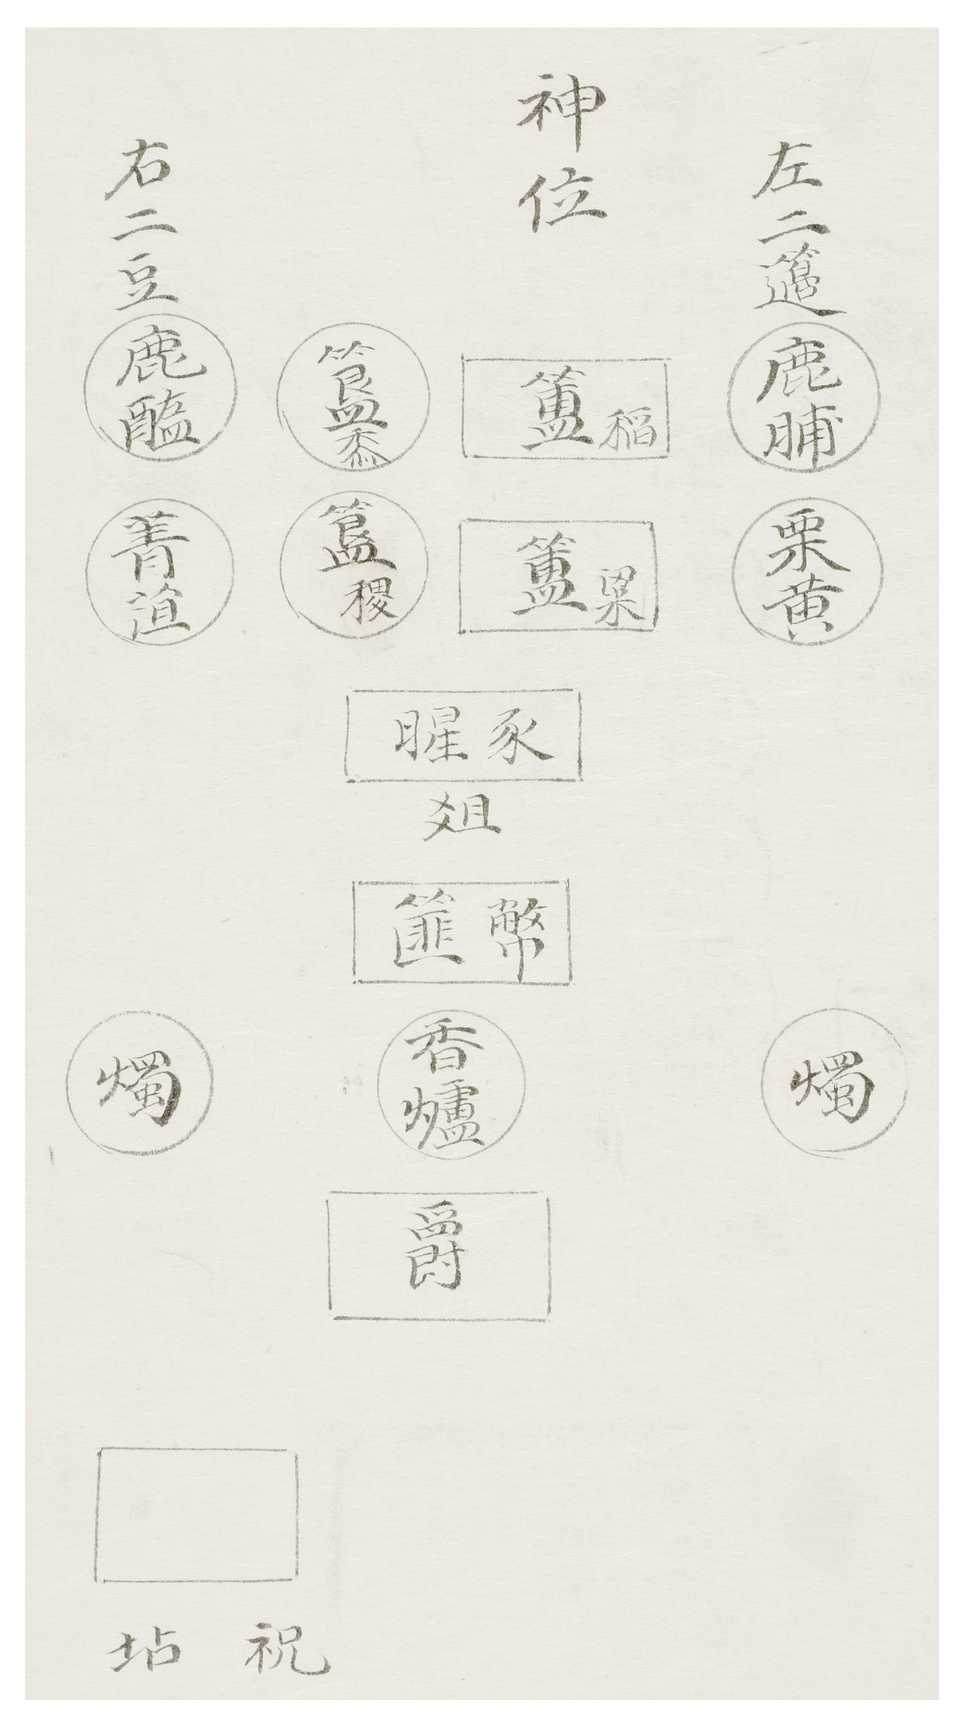 神位
左二籩
鹿脯
栗黄
簠稻
簠粱
簋黍
簋稷
右二豆
鹿醢
菁菹
豕腥
俎
幣篚
燭
香爐
燭
爵
祝坫